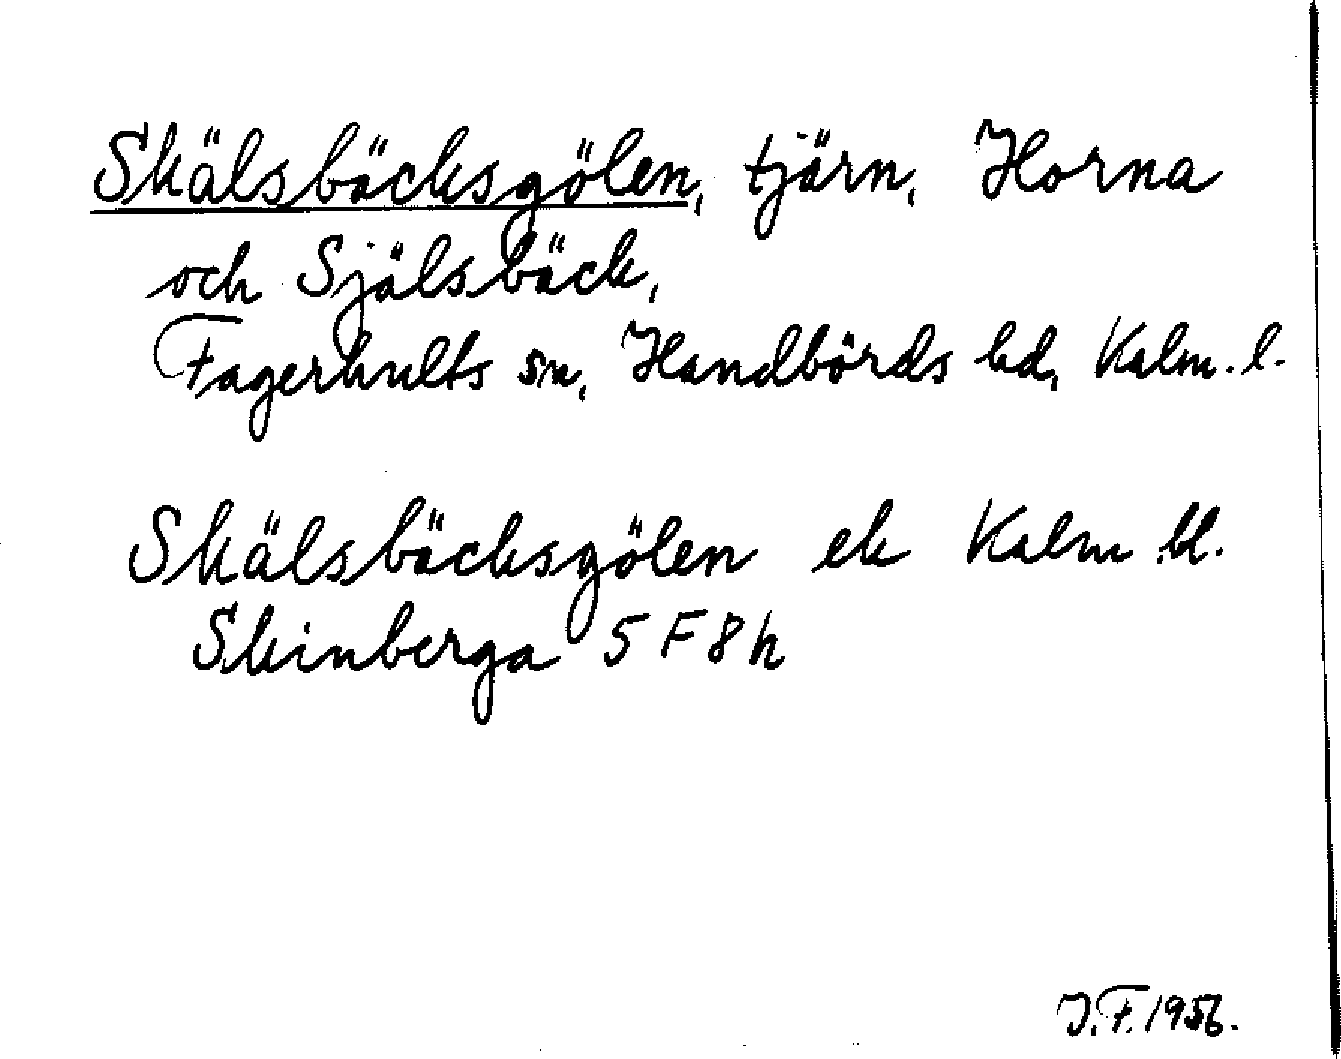 Skälsbäcksgölen, tjärn, Horna
och Själsbäck,
Fagerhults sn, Handbörds hd, Kalm. l.
Skälsbäcksgölen ek Kalm bl.
Skinberga 5 F 8 h
J.F. 1956.